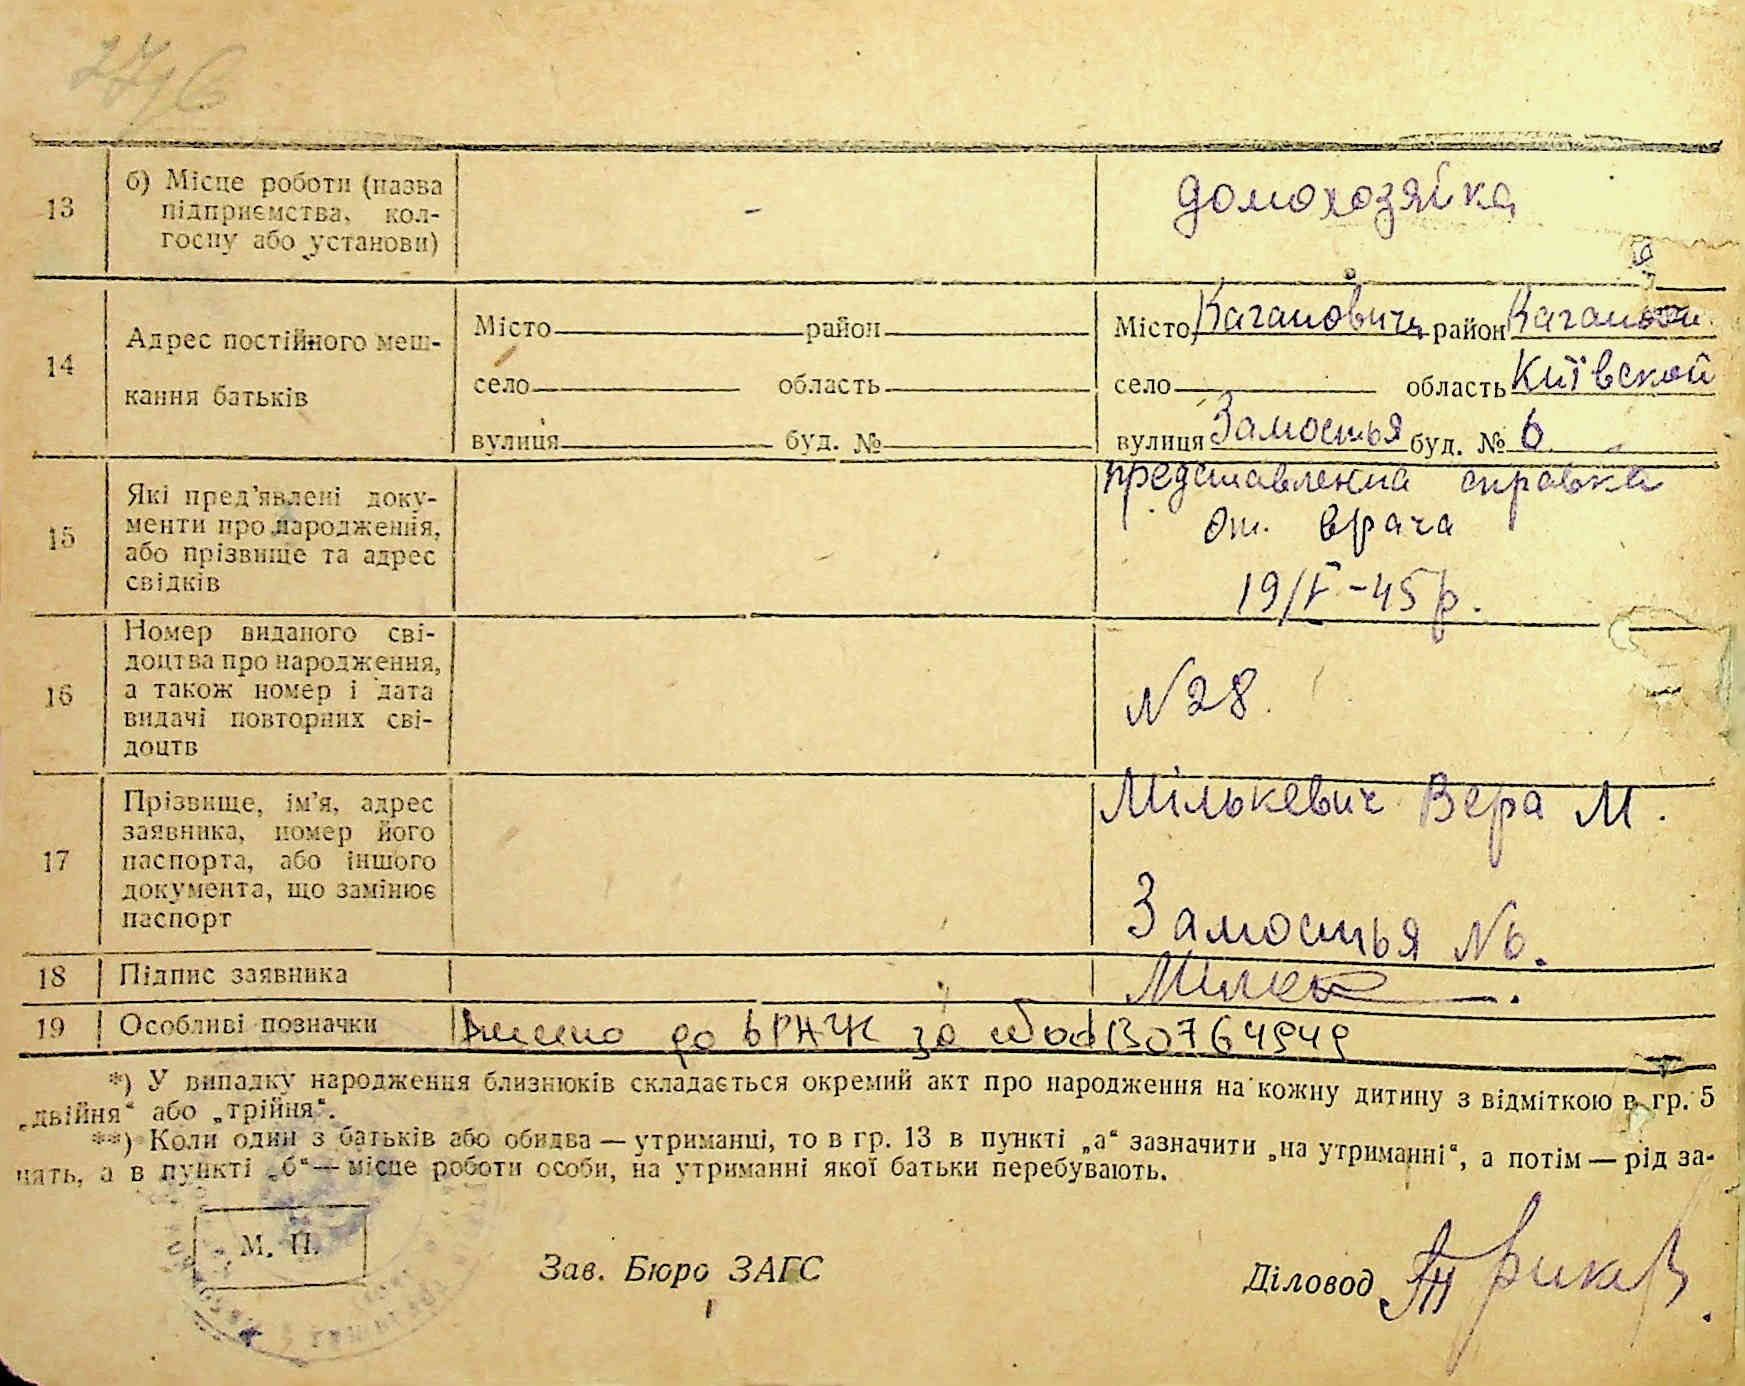 13
б) Місце роботи (назва
підприємства, кол-
госпу або установи)
-
домохозяйка
14
Адрес постійного меш-
кання батьків
Місто район
село область
вулиця буд. №
Місто Кагановичи район Каганови.
село область Київской
вулиця Замостья буд. № 6
15
Які пред’явлені доку-
менти про народження,
або прізвище та адрес
свідків
представленна справка
от. врача
19/V-45 р.
16
Номер виданого сві-
доцтва про народження,
а також номер і дата
видачі повторних сві-
доцтв
N 28.
17
Прізвище, ім’я, адрес
заявника, номер його
паспорта, або іншого
документа, що замінює
паспорт
Мількевич Вера М.
Замостья № 6.
18
Підпис заявника
19
Особливі позначки
Внесено до ВРАЖ за 00130764949
*) У випадку народження близнюків складається окремий акт про народження на кожну дитину з відміткою в гр. 5
„двійня“ або „трійня“.
**) Коли один з батьків або обидва — утриманці, то в гр. 13 в пункті „а“ зазначити „на утриманні“, а потім — рід за-
нять, а в пункті „б“ — місце роботи особи, на утриманні якої батьки перебувають.
М. П.
Зав. Бюро ЗАГС
Діловод